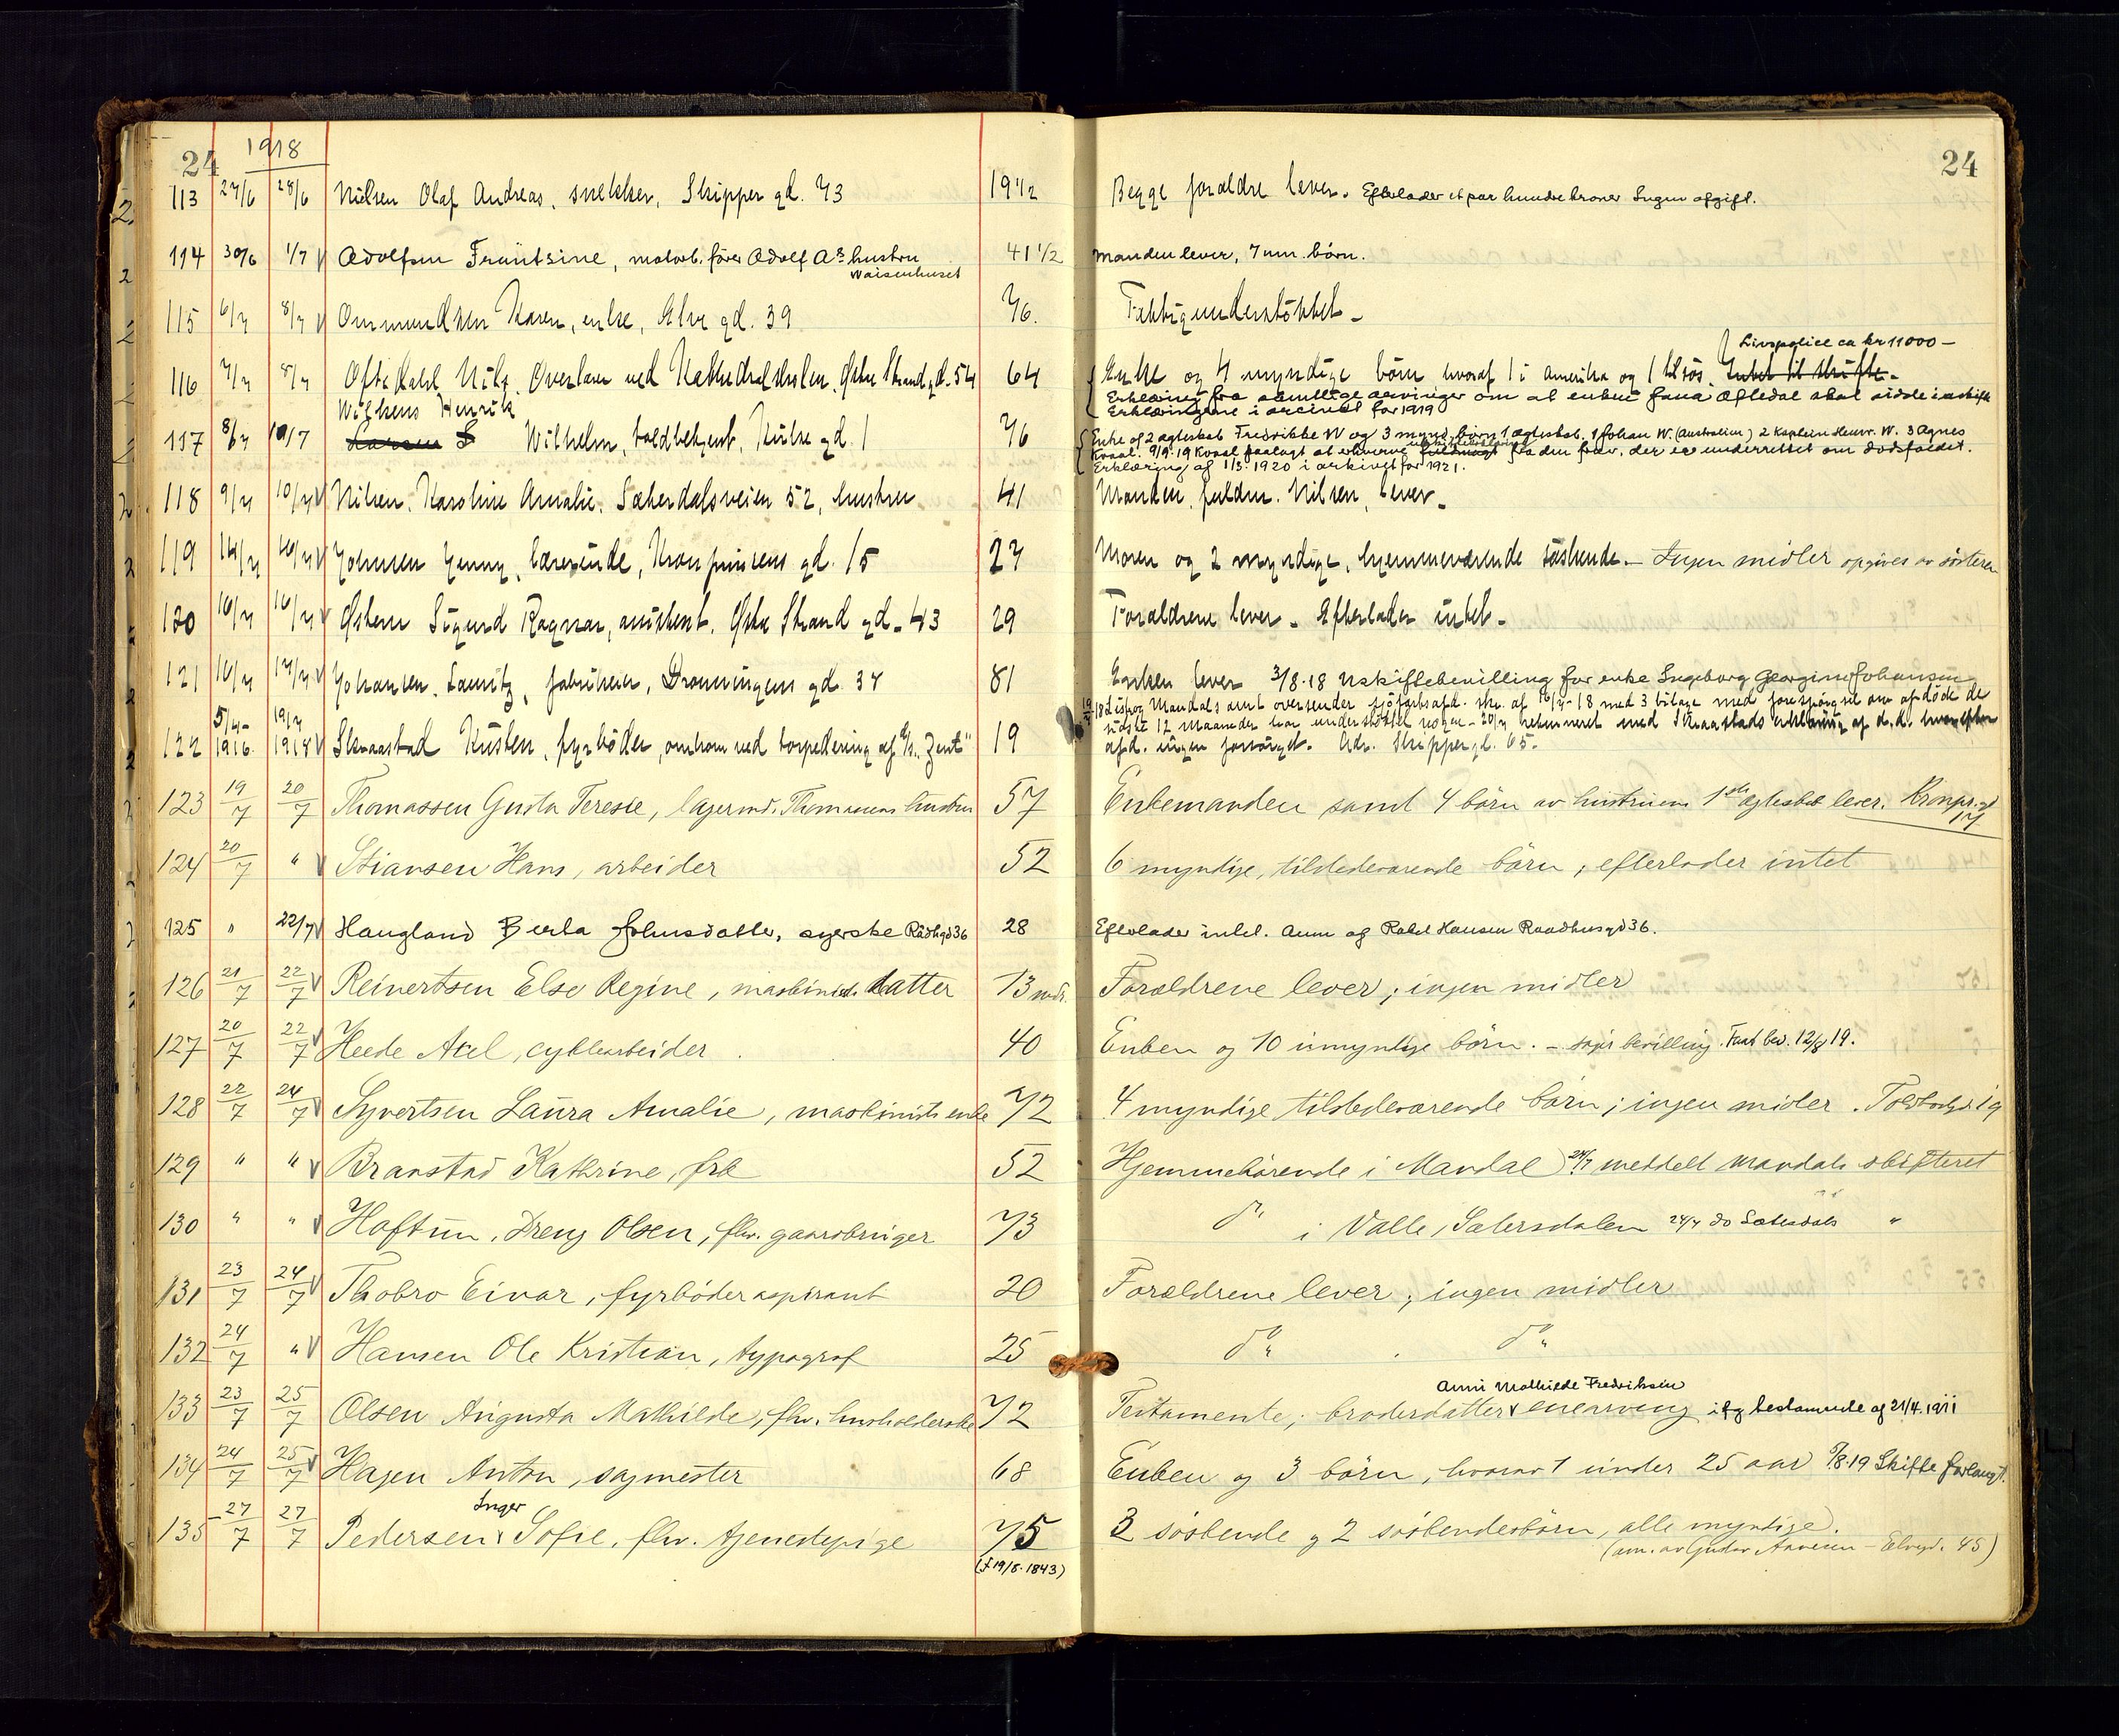 24 1918 24
113 27/6 28/6 Nielsen Olaf Andreas, snekker, Skipper gd. 73 19 1/2 Begge forældre lever. Efterlader et par hundre kroner Ingen afgift.
114 30/6 1/7 Adolfsen, motorb. fører Adolf A's hustru 41 1/2 Manden lever, 7 um. børn.
Waisenhuset
115 6/7 8/7 Ommundsen Karen, enke, Elve gd. 39 76. Fattigunderstøttet.
Livspolice ca kr 11000 —
116 7/7 8/7 Oftedahl Nils, Overlærer ved Kathedralskolen, Østre Strand gd. 54 64 Enke og 4 myndige børn hvoraf 1 i Amerika og 1 tilsjøs. Intet til skifte.
Erklæring fra samtlige arvinger om at enken Jana Oftedal skal sidde i uskifte
Erklæringerne i arcivet for 1919
Wilhsens Henrik
117 8/7 10/7 Larsen Wilhelm, toldbetjent, Kirke gd. 1 76 Enke af 2 ægteskab Fredrikke W og 3 mynd. børn 1 ægteskab. 1 Johan W. (Australien) 2 Kaptein Henr. W. 3 Agnes
Kvaal. 9/9.19 Kvaal paalagt at erhverve fuldmagt fra den frav. der er underrettet om dødsfaldet.
Erklæring af 1/3.1920 i arkivet for 1921.
118 9/7 10/7 Nilsen, Karoline Amalie, Sæterdalsveien 52, hustru 41 Manden, fuldm. Nilsen, lever.
119 14/7 16/7 Johnsen Jenny, lærerinde, Kronprinsens gd. 15 27 Moren og 2 myndige, hjemmeværende søskende. — Ingen midler opgives av søsteren
120 16/7 16/7 Østern Sigurd Ragnar, assistent, Østre Strand gd. 43 29 Forældrene lever. Efterlader intet.
121 16/7 17/7 Johansen, Lauritz, fabrikeier, Dronningens gd. 37 81 Enken lever 3/8.18 Uskiftebevilling for enke Ingeborg Georgine Johansen
19/7 18 Lister og Mandals amt oversender sjøfartsafd. skr. af 16/7-18 med 3 bilage med forespørgsel om afdøde de
122 5/4-1916. 19/7 1918 Skraastad Kristen, fyrbøder, omkom ved torpedering af D/S. "Zent" 19 sidste 12 maaneder har understøttet nogen — 20/7 returneret med Skraastads erklæring af d.d. hvorefter
afd. ingen forsørget. Adr. Skippergd. 65.
123 19/7 20/7 Thomassen Gusta Teresie, lagermd. Thomassens hustru 57 Enkemanden samt 4 børn av hustruens 1ste ægteskab lever. Kronpr.gd 17
124 20/7 " Stiansen Hans, arbeider 52 6 myndige, tilstedeværende børn; efterlader intet
125 " 22/7 Haugland Berta Johnsdatter, syerske Rådhgd 36 28 Efterlader intet. Anm af Rakel Hansen Raadhusgd 36.
126 21/7 22/7 Reinertsen Else Regine, maskinists datter 13 mdr. Forældrene lever; ingen midler
127 20/7 22/7 Heede Axel, cyklearbeider 40 Enken og 10 umyndige børn. — søger bevilling. Faat bev. 12/8 19.
128 22/7 24/7 Syvertsen Laura Amalie, maskinists enke 72 4 myndige tilstedeværende børn; ingen midler. Toldbodgd. 19
129 " " Branstad Kathrine, frk 52 Hjemmehørende i Mandal 24/7 meddelt Mandals skifteret
130 " " Hoftun, Dreng Olsen, fhv. gaardbruger 73 do i Valle, Sætersdalen 24/7 do Sætesdals "
131 23/7 24/7 Thobro Einar, fyrbøderaspirant 20 Forældrene lever; ingen midler
132 24/7 " Hansen Ole Kristian, typograf 25 do do
Anni Mathilde Fredriksen
133 23/7 25/7 Olsen Augusta Mathilde, fhv. husholderske 72 Testamente; broderdatter enearving ifg testamente af 21/4.1911
134 24/7 25/7 Hagen Anton, sagmester 68 Enken og 3 børn, hvorav 1 under 25 aar 7/8.19 Skifte forlangt.
Inger
135 27/7 27/7 Pedersen Sofie, fhv. tjenestepige 75 3 søskende og 2 søskendebørn, alle myndige.
(f 19/5.1843) (anm. av Gustav Aanesen — Elvegd. 45)